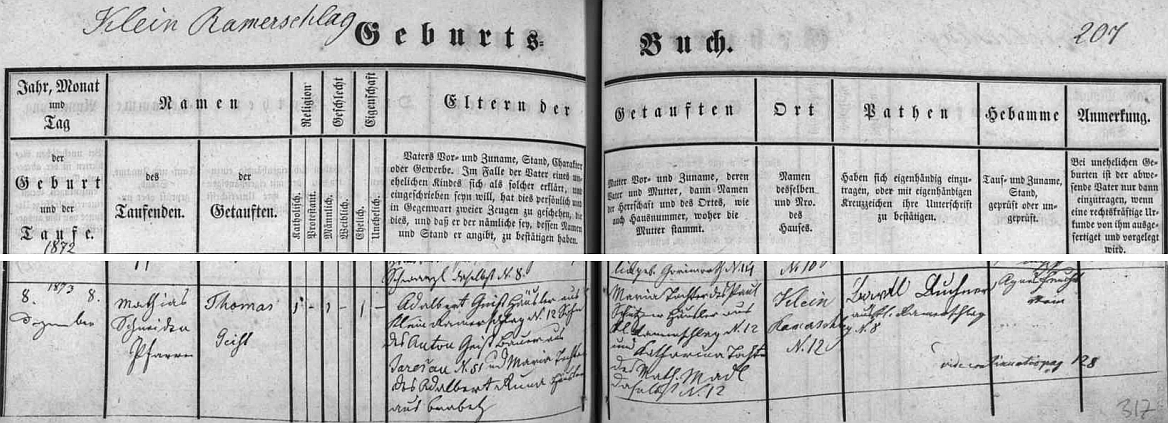 Klein Ramerschlag
Geburts-
Buch.
207
Jahr, Monat
und
Tag
der
Geburt
und der
Taufe.
1872
Namen
des
Taufenden.
der
Getauften.
Religion
Katholisch.
Protestant.
Geschlecht
Männlich.
Weiblich.
Eigenschaft
Ehelich.
Unehelich.
Eltern der
Vaters Vor- und Zuname, Stand, Charakter
oder Gewerbe. Im Falle der Vater eines un-
ehelichen Kindes sich als solcher erklärt, und
eingeschrieben seyn will, hat dies persönlich und
in Gegenwart zweier Zeugen zu geschehen, die
dies, und daß er der nämliche sey, dessen Namen
und Stand er angibt, zu bestätigen haben.
Getauften
Mutter Vor- und Zuname, deren
Vater und Mutter, dann Namen
der Herrschaft und des Ortes, wie
auch Hausnummer, woher die
Mutter stammt.
Ort
Namen
desselben
und Nro.
des
Hauses.
Pathen
Haben sich eigenhändig einzu-
tragen, oder mit eigenhändigen
Kreuzzeichen ihre Unterschrift
zu bestätigen.
Hebamme
Tauf- und Zuname,
Stand,
geprüft oder un-
geprüft.
Anmerkung.
Bei unehelichen Ge-
burten ist der abwe-
sende Vater nur dann
einzutragen, wenn
eine rechtskräftige Ur-
kunde von ihm ausge-
fertiget und vorgelegt
wird.
daselbst N. 8
N. 14
N. 10
1873
8. 8.
Dezember
Mathias
Schneider
Pfarrer
Thomas
Geist
1 - 1 - 1 -
Adalbert Geist Häusler aus
Klein Ramerschlag N. 12 Sohn
des Anton Geist Bauer aus
N. 51 und Maria Tochter
des Adalbert Kuna Häusler
aus
Maria Tochter des Paul
Häusler aus
Kl. Ramerschlag N. 12
und Katharina Tochter
des Math. Madl
daselbst N. 12
Klein
Ramerschlag
N. 12
aus Kl. Ramerschlag
N. 8
pag 128
317